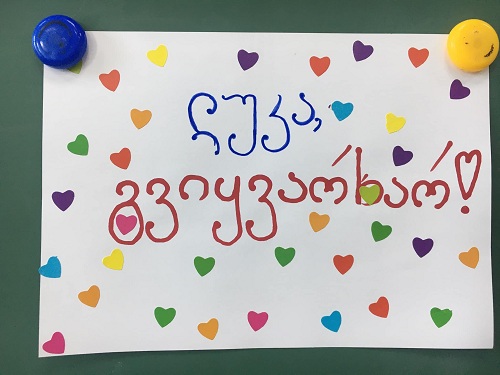 ლუკა,
გვიყვარხარ!